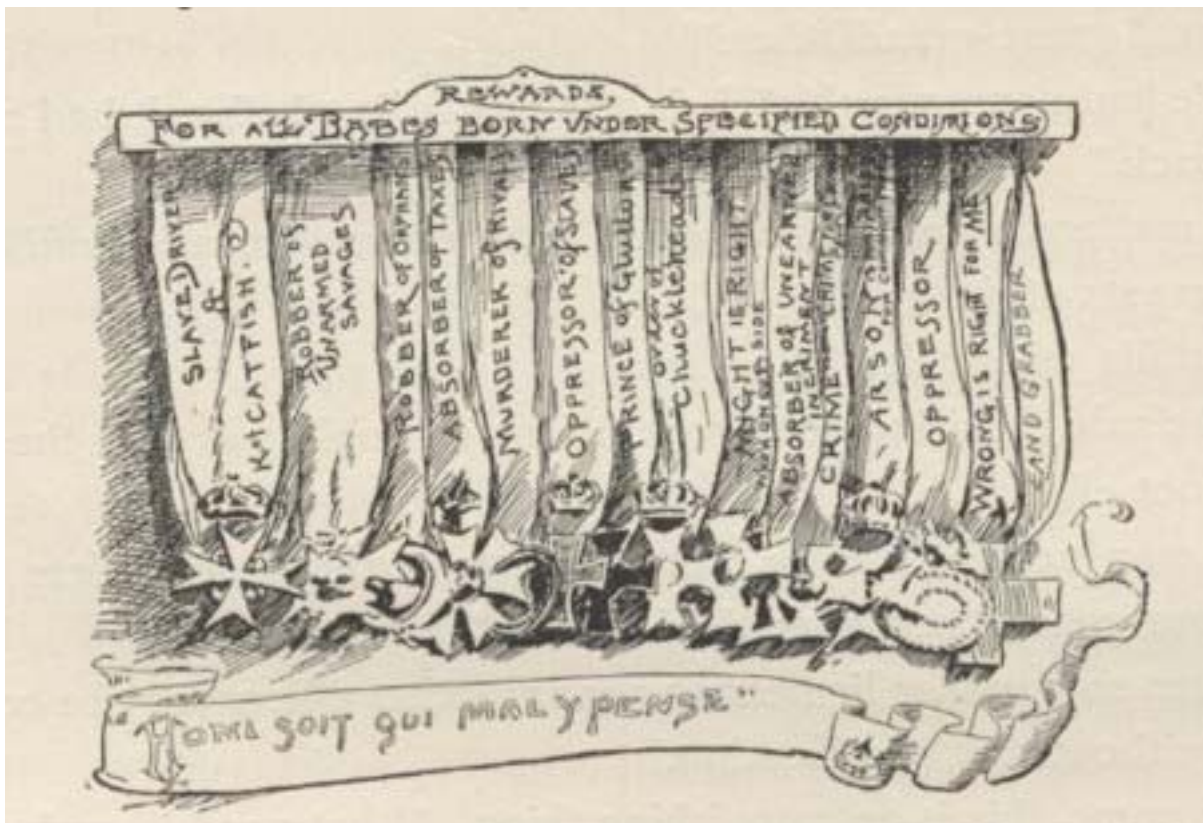 REWARDS,
FOR ALL "BABES BORN UNDER SPECIFIED CONDITIONS
SLAVE DRIVER
&
KotCATFISH.
ROBBER OF
UNARMED
SAVAGES
ROBBER OF
ABSORBER OF TAXES
MURDERER of RIVALS
OPPRESSOR OF SLAVES
PRINCE of
Order of
Chucklehead
MIGHT IS RIGHT
ABSORBER OF UNEARNED
INCRIMENT
CRIME
ARSON
OPPRESSOR
WRONG IS RIGHT FOR ME
LAND GRABBER
"HONI SOIT QUI MAL Y PENSE"